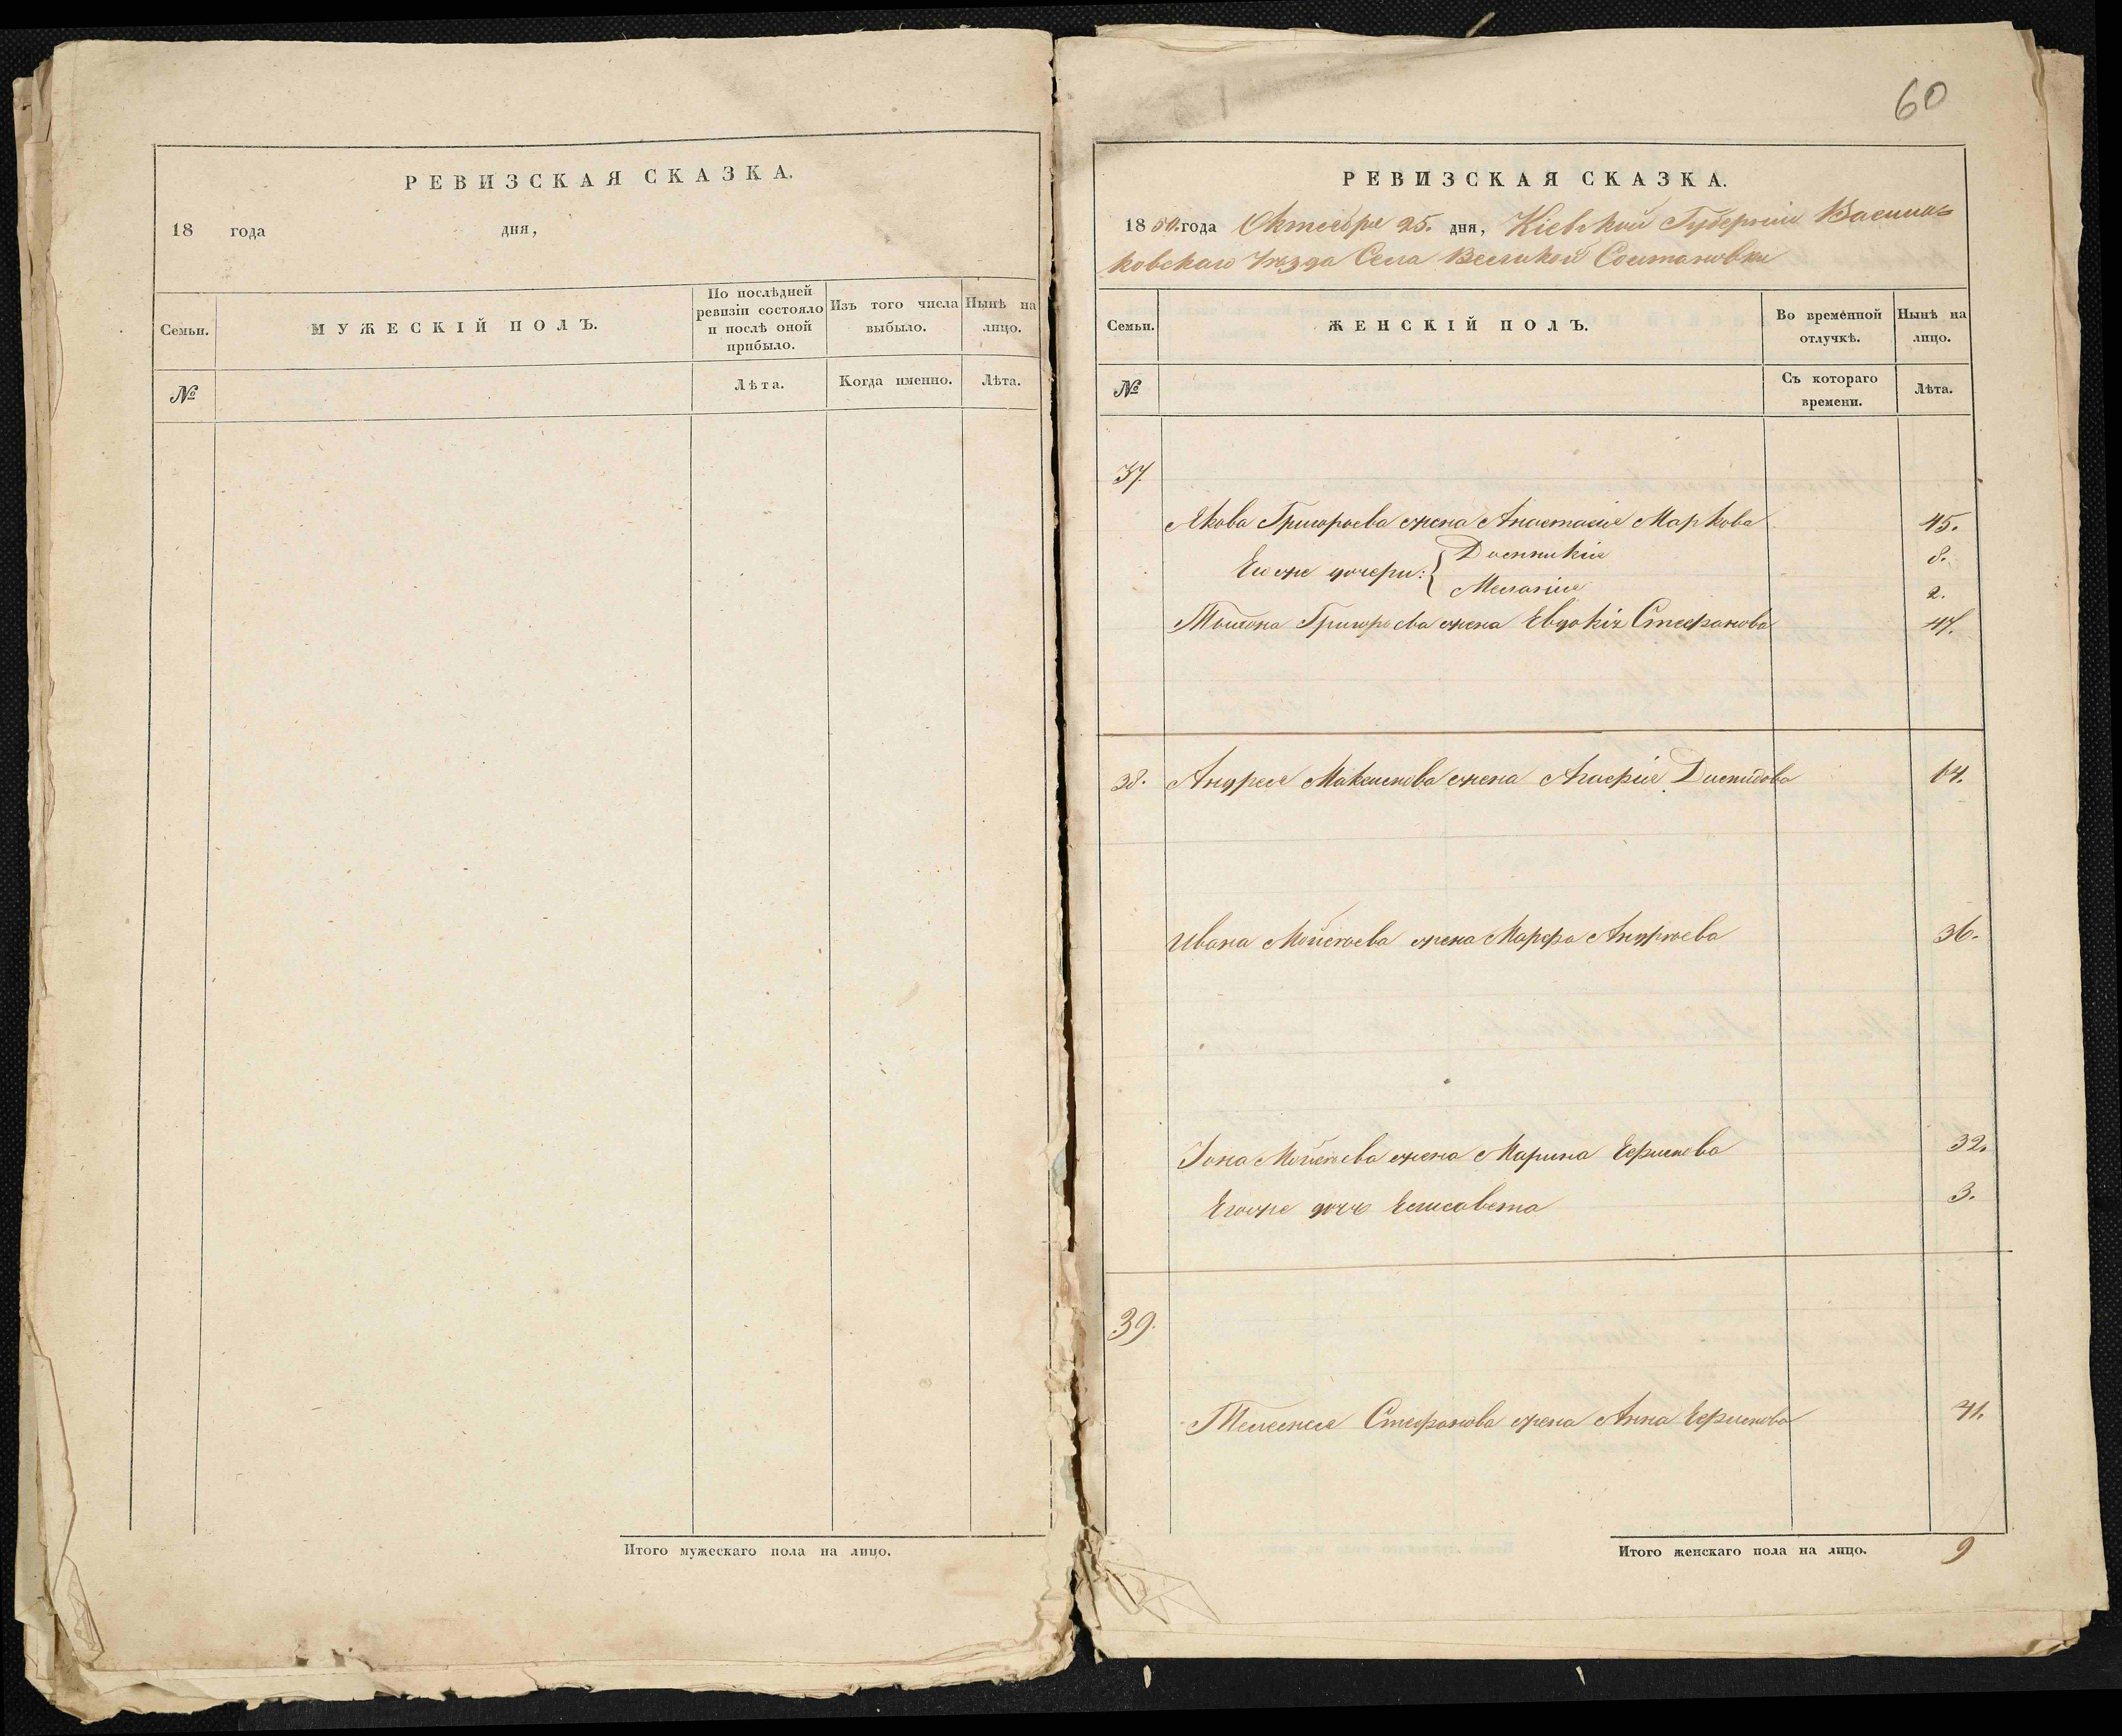 РЕВИЗСКАЯ СКАЗКА.
18 года дня,
Семьи.
МУЖЕСКІЙ ПОЛЪ.
По послѣдней ревизіи состояло и послѣ оной прибыло.
Изъ того числа выбыло.
Нынѣ на лицо.
№
Лѣта.
Когда именно.
Лѣта.
Итого мужескаго пола на лицо.
60
РЕВИЗСКАЯ СКАЗКА.
1850. года Октября 25. дня, Кіевской Губерніи Василь-
ковскаго Уѣзда Села Великой Солтановки
Семьи.
ЖЕНСКІЙ ПОЛЪ.
Во временной отлучкѣ.
Нынѣ на лицо.
№
Съ котораго времени.
Лѣта.
37.
Якова Григорьева жена Анастасія Маркова 45.
Его же дочери: Домникія 8.
Меланія 2.
Григорьева жена Евдокія Стефанова 47.
38. Андрея Максимова жена Агафія Демидова 64.
Ивана Мойсѣева жена Марфа Андрѣева 36.
Іона Мойсѣева жена Марина Ефимова 32.
Его же дочь Елисавета 3.
39.
Стефанова жена Анна Ефимова 41.
Итого женскаго пола на лицо. 9